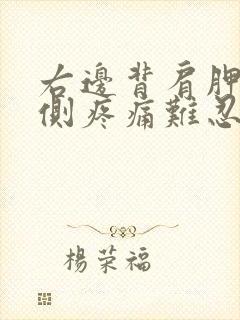 右邊背肩胛
側疼痛難忍
楊荣福